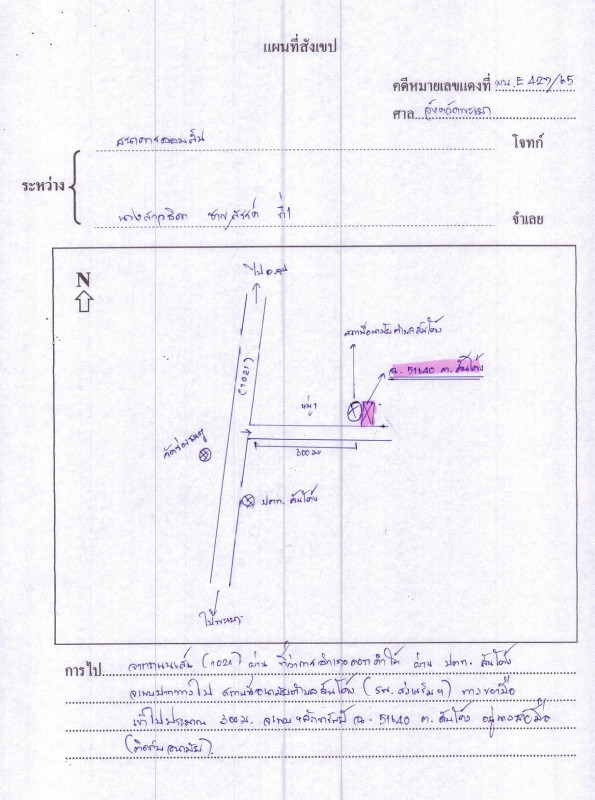 แผนที่สังเขป
คดีหมายเลขแดงที่ ผบ.E 427/65
ศาล จังหวัดพะเยา
ธนาคารออมสิน โจทก์
ระหว่าง
นางสาวธิดา ที่ 1 จำเลย
N
ไป
(1021)
สถานีอนามัยตำบลสันโค้ง
ฉ. 51640 ต. สันโค้ง
หมู่ 1
300 ม.
ปตท. สันโค้ง
ไปพะเยา
การไป จากถนนเส้น (1021) ผ่าน ที่ว่าการอำเภอดอกคำใต้ ผ่าน ปตท. สันโค้ง
จะพบปากทางไป สถานีอนามัยตำบลสันโค้ง (รพ. ส่งเสริมฯ) ทางขวามือ
เข้าไปประมาณ 300 ม. จะพบ หลักทรัพย์ ฉ. 51640 ต. สันโค้ง อยู่ทางซ้ายมือ
(ติดกับอนามัย)